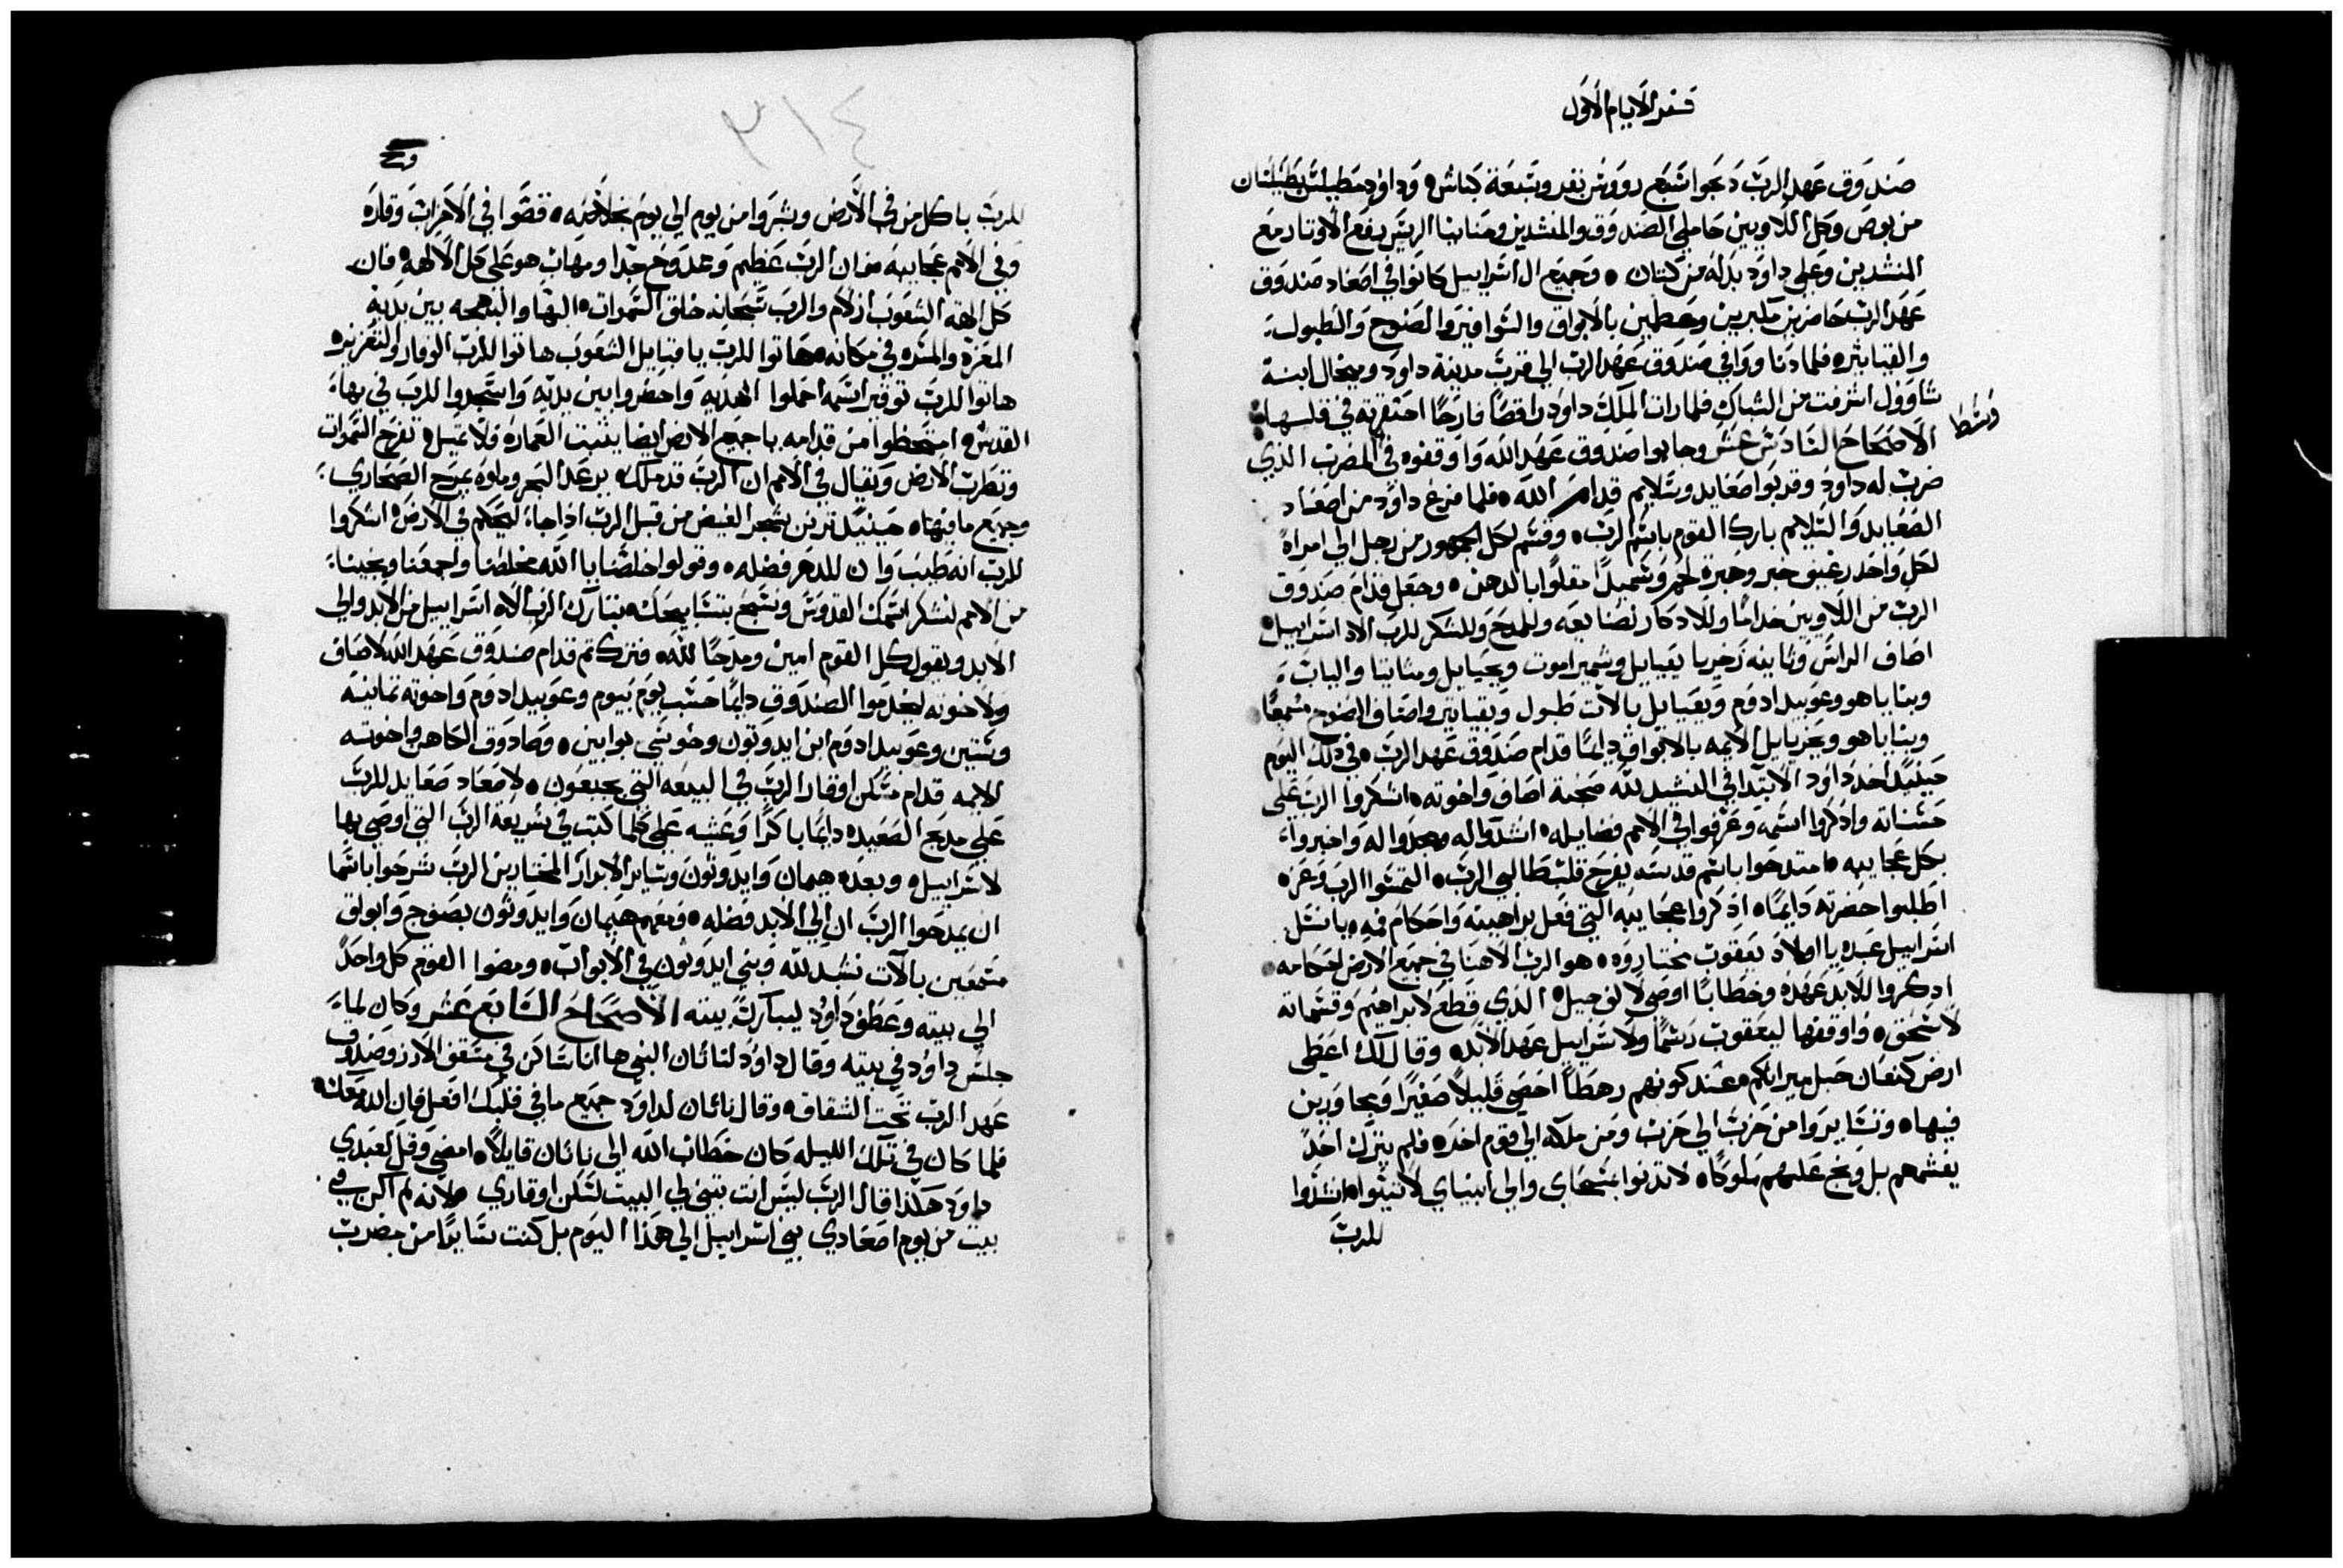 سفر الايام الاول
صندوق عهد الرب دبحوا سبع رووس بقر وسبعة كباش وداود متطيلس بطيلسان
من بوص وكل اللاويين حاملي الصندوق والمنشدين وحنانيا الريس برفع الاوتار مع
المنشدين وعلي داود بدله من كتان وجميع ال اسراييل كانوا في اصعاد صندوق
عهد الرب حاضرين مكبرين ومعظمين بالابواق والسوافير والصنوج والطبول
والقياثير فلما دنا ووافي صندوق عهد الرب الي قرب مدينة داود وميخال ابنة
شاوول اشرفت من الشباك فلما رات الملك داود راقصا فارحا احتقرته في قلبها
وسط
الاصحاح السادس عشر وجابوا صندوق عهد الله واوقفوه في المضرب الذي
ضرب له داود وقدبوا صعايد وسلايم قدام الله فلما فرغ داود من اصعاد
الصعايد والسلايم بارك القوم باسم الرب وقسم لكل الجمهور من رجل الي امراة
لكل واحد رغيف خبز وخبزة لحم وسميدا مقلوا بالدهن وجعل قدام صندوق
الرب من اللاويين خداما وللادكار لصنايعه وللمدح وللشكر للرب الاه اسراييل
اصاف الراس وثانيه زخريا يعياييل وشميراموت ويحياييل ومتاتيا والياب
وبناياهو وعوبيد ادوم ويعياييل بالات طبول وبقياثير واصاف بالصنوج مسمعا
وبناياهو ويحزياييل الايمه بالابواق دايما قدام صندوق عهد الرب في ذلك اليوم
حينيد اخد داود الابتدا في النشيد لله صحبة اصاف واخوته اشكروا الرب علي
حسناته واذكروا اسمه وعرفوا في الامم فضايله انشدوا له ومجدوا له واخبروا
بكل عجايبه امتدحوا باسم قدسه يفرح قلب طالبي الرب التمسوا الرب وعزه
اطلبوا حضرته دايما اذكروا عجايبه التي فعل براهينه واحكام فمه يا نسل
اسراييل عبده يا اولاد يعقوب مختاروه هو الرب الاهنا في جميع الارض احكامه
ادكروا للابد عهده وخطابا اوصي لالف جيل الذي قطع لابراهيم وقسماته
لاسحق واوقفها ليعقوب رسما ولاسراييل عهد الابد وقال لك اعطي
ارض كنعان حبل ميراثكم عند كونهم رهطا احصي قليلا صغيرا ومجاورين
فيها وتسايروا من حزب الي حزب ومن ملكه الي قوم اخر فلم يترك احد
يغشمهم بل وبخ عليهم ملوكا لا تدنوا بمسحاي والي انبياي لا تسيوا انشدوا
للرب
٣١٤
للرب يا كل من في الارض وبشروا من يوم الي يوم بخلاصه قصوا في الاحزاب وقاره
وفي الامم عجايبه من ان الرب عظيم وممدوح جدا ومهاب هو علي كل الالهه فان
كل الهة الشعوب ازلام والرب سبحانه خلق السموات البها والبهجه بين يديه
المعزة والمسره في مكانه هاتوا للرب يا قبايل الشعوب هاتوا للرب الوقار والتعزيزه
هاتوا للرب توقير اسمه احملوا الهديه واحضروا بين يديه واسجدوا للرب في بهاء
القدس امتحظوا من قدامه يا جميع الارض ايضا يثبت العماره فلا تميل تفرح السموات
وتطرب الارض ويقال في الامم ان الرب قد ملك يرعد البحر وملوه يمرح الصحاري
وجميع ما فيها حينيد ترنن شجر الغيض من قبل الرب اذا جاء ليحكم في الارض اشكروا
للرب انه طيب وان للدهر فضله وقولوا خلصنا يا الله مخلصنا واجمعنا ونجينا
من الامم لنشكر اسمك القدوس ونسبح بتسابيحك تبارك الرب الاه اسراييل من الابد والي
الابد ويقول كل القوم امين ومدحا لله فتركتم قدام صندوق عهد الله لاصاف
ولاخوته ليخدموا الصندوق دايما حسب يوم بيوم وعوبيد ادوم واخوته تمانيه
وستين وعوبيد ادوم ابن ايدوثون وحوسي بوابين وصادوق الكاهن واخوته
الايمه قدام مسكن اوقار الرب في البيعه التي بجبعون لاصعاد صعايد للرب
علي مدبح الصعيده دايما باكرا وعشيه علي كلما كتب في شريعة الرب التي اوصي بها
لاسراييل وبعده هيمان وايدوثون وساير الابرار المختارين الرب شرحوا باسما
ان يمدحوا الرب ان الي الابد فضله ومعهم هيمان وايدوثون بصنوج وابواق
مسمعين بالات نشيد لله وبني ايدوثون في الابواب ومضوا القوم كل واحد
الي بيته وعطف داود ليبارك بيته الاصحاح السابع عشر وكان لماء
جلس داود في بيته وقال داود لناثان النبي ها انا ساكن في سقف الارز وصندوق
عهد الرب تحت الشقاق وقال ناثان لداود جميع ما في قلبك افعل فان الله معك
فلما كان في تلك الليله كان خطاب الله الي ناثان قايلا امضي وقل لعبدي
داود هكذا قال الرب ليس انت تبني لي البيت لسكن اوقاري لانه لم اكن في
بيت من يوم اصعادي بني اسراييل الي هذا اليوم بل كنت سايرا من مضرب